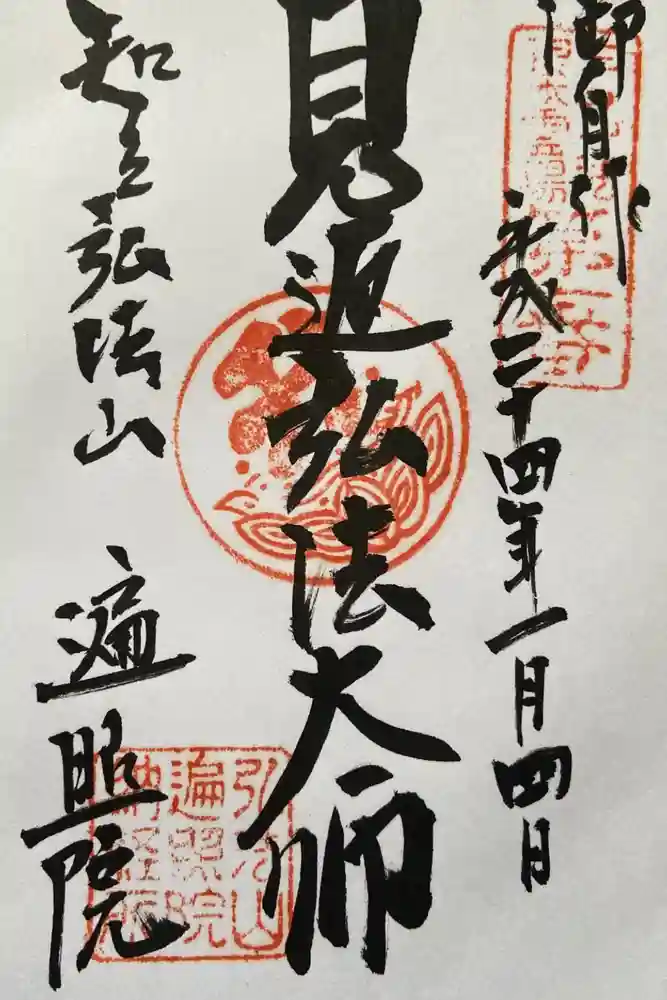 御身代
平成二十四年一月四日
見返弘法大師
知立弘法山
遍照院
弘法山
遍照院
納経所